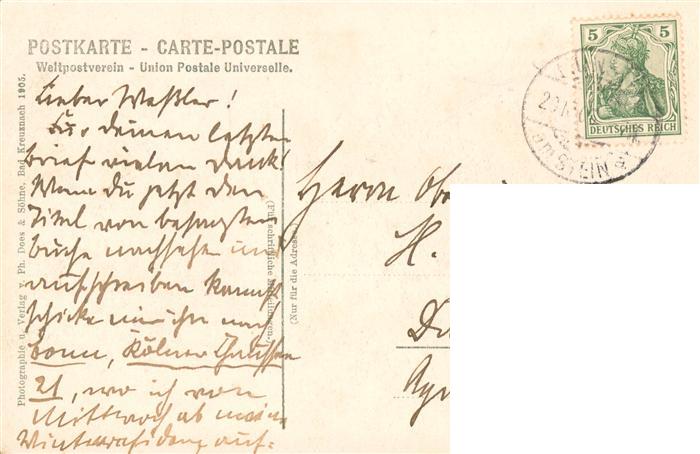 POSTKARTE - CARTE-POSTALE
Weltpostverein - Union Postale Universelle.
Lieber Weßler!
Für deinen letzten
Brief vielen Dank!
Wenn du jetzt den
Titel von besagtem
Buche nachsehen und
aufschreiben kannst
schicke mir ihn nach
Bonn, Kölner Chaussee
21, wo ich von
Mittwoch ab meine
Winterresidenz auf-
Photographie u. Verlag v. Ph. Does & Söhne, Bad Kreuznach 1905.
(Für schriftliche Mitteilungen.)
(Nur für die Adresse)
Herrn Obe
H.
5 5
DEUTSCHES REICH
am STEIN